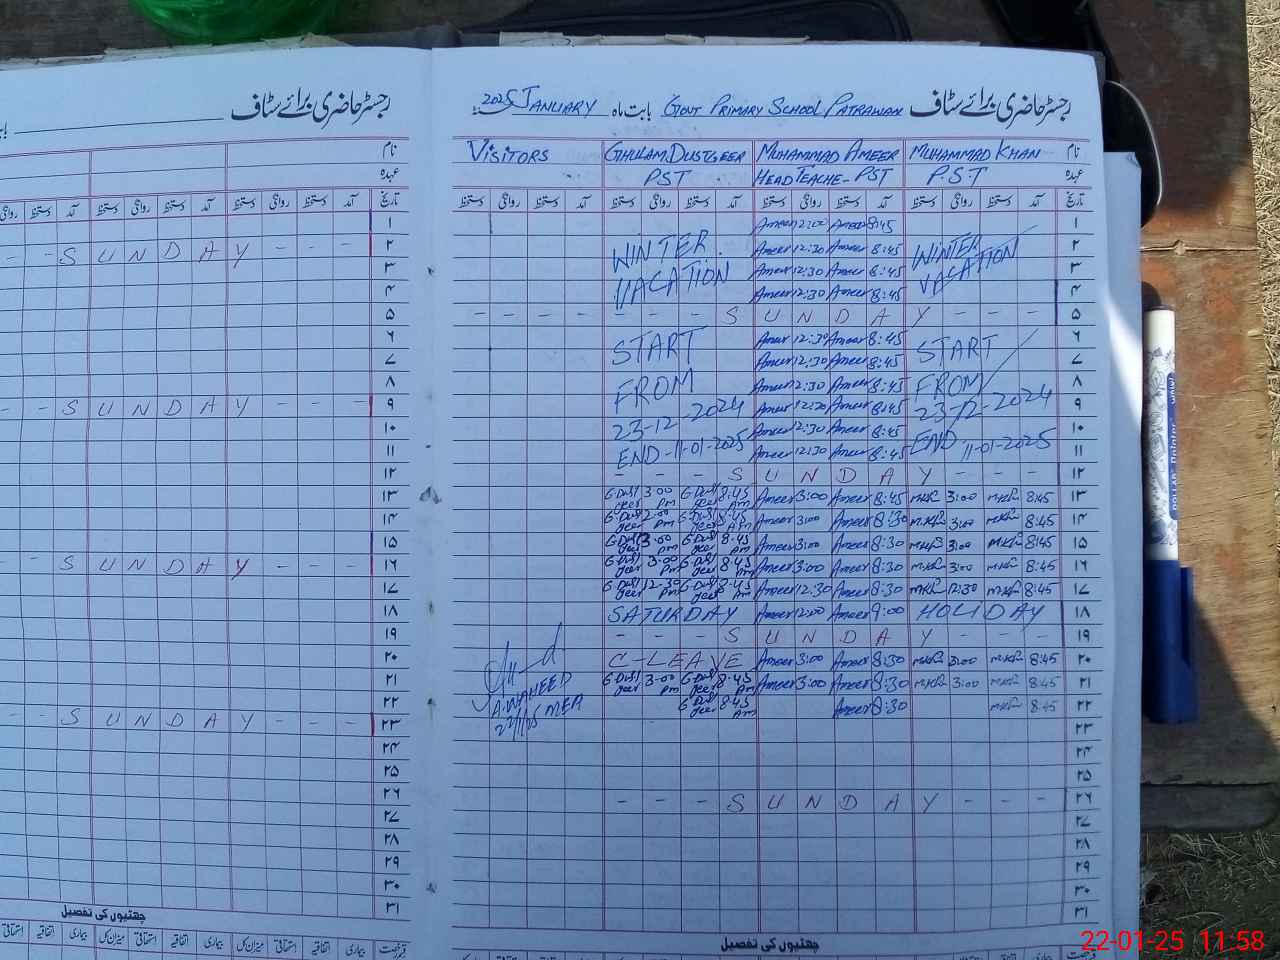 رجسٹر حاضری برائے سٹاف
رجسٹر حاضری برائے سٹاف GOVT PRIMARY SCHOOL PATRAWAN بابت ماہ JANUARY 2025
نام MUHAMMAD KHAN MUHAMMAD AMEER GHULAM DUSTGEER VISITORS
عہدہ P.S.T HEAD TEACHE- PST PST
تاریخ آمد دستخط روانگی دستخط آمد دستخط روانگی دستخط آمد دستخط روانگی دستخط آمد دستخط روانگی دستخط
۱ Ameer 12:00 Ameer 8:45
۲ WINTER Ameer 12:30 Ameer 8:45 WINTER
۳ VACATION Ameer 12:30 Ameer 8:45 VACATION
۴ Ameer 12:30 Ameer 8:45
۵ - - - - - - - S U N D A Y - - -
۶ START Ameer 12:30 Ameer 8:45 START
۷ Ameer 12:30 Ameer 8:45
۸ FROM Ameer 12:30 Ameer 8:45 FROM
۹ 23-12-2024 Ameer 12:30 Ameer 8:45 23-12-2024
۱۰ Ameer 12:30 Ameer 8:45
۱۱ END-11-01-2025 Ameer 12:30 Ameer 8:45 END 11-01-2025
۱۲ - - - S U N D A Y - - -
۱۳ G.Dustgeer 3:00 Pm G.Dustgeer 8:45 Am Ameer 3:00 Ameer 8:45 3:00 8:45
۱۴ G.Dustgeer 2:00 Pm G.Dustgeer 8:45 Am Ameer 3:00 Ameer 8:30 3:00 8:45
۱۵ G.Dustgeer 3:00 Pm G.Dustgeer 8:45 Am Ameer 3:00 Ameer 8:30 3:00 8:45
۱۶ G.Dustgeer 3:00 Pm G.Dustgeer 8:45 Am Ameer 3:00 Ameer 8:30 3:00 8:45
۱۷ G.Dustgeer 12:30 Pm G.Dustgeer 8:45 Am Ameer 12:30 Ameer 8:30 12:30 8:45
۱۸ SATURDAY Ameer 12:00 Ameer 9:00 HOLIDAY
۱۹ - - - S U N D A Y - - -
۲۰ C-LEAVE Ameer 3:00 Ameer 8:30 3:00 8:45
۲۱ G.Dustgeer 3:00 Pm G.Dustgeer 8:45 Am Ameer 3:00 Ameer 8:30 3:00 8:45
۲۲ G.Dustgeer 8:45 Am Ameer 8:30 8:45
A.WAHEED
MEA
22/1/25
۲۳
۲۴
۲۵
۲۶ - - - S U N D A Y - - -
۲۷
۲۸
۲۹
۳۰
۳۱
چھٹیوں کی تفصیل
تاریخ آمد دستخط روانگی دستخط آمد دستخط روانگی دستخط آمد دستخط روانگی
نام
عہدہ
۱
۲ - - S U N D A Y - - -
۳
۴
۵
۶
۷
۸
۹ - - S U N D A Y - - -
۱۰
۱۱
۱۲
۱۳
۱۴
۱۵
۱۶ - S U N D A Y - - -
۱۷
۱۸
۱۹
۲۰
۲۱
۲۲
۲۳ - - S U N D A Y - - -
۲۴
۲۵
۲۶
۲۷
۲۸
۲۹
۳۰
۳۱
چھٹیوں کی تفصیل
بیماری اتفاقیہ استحقاقی میزان کل بیماری اتفاقیہ استحقاقی میزان کل بیماری اتفاقیہ استحقاقی
DOLLAR Pointer
22-01-25 11:58